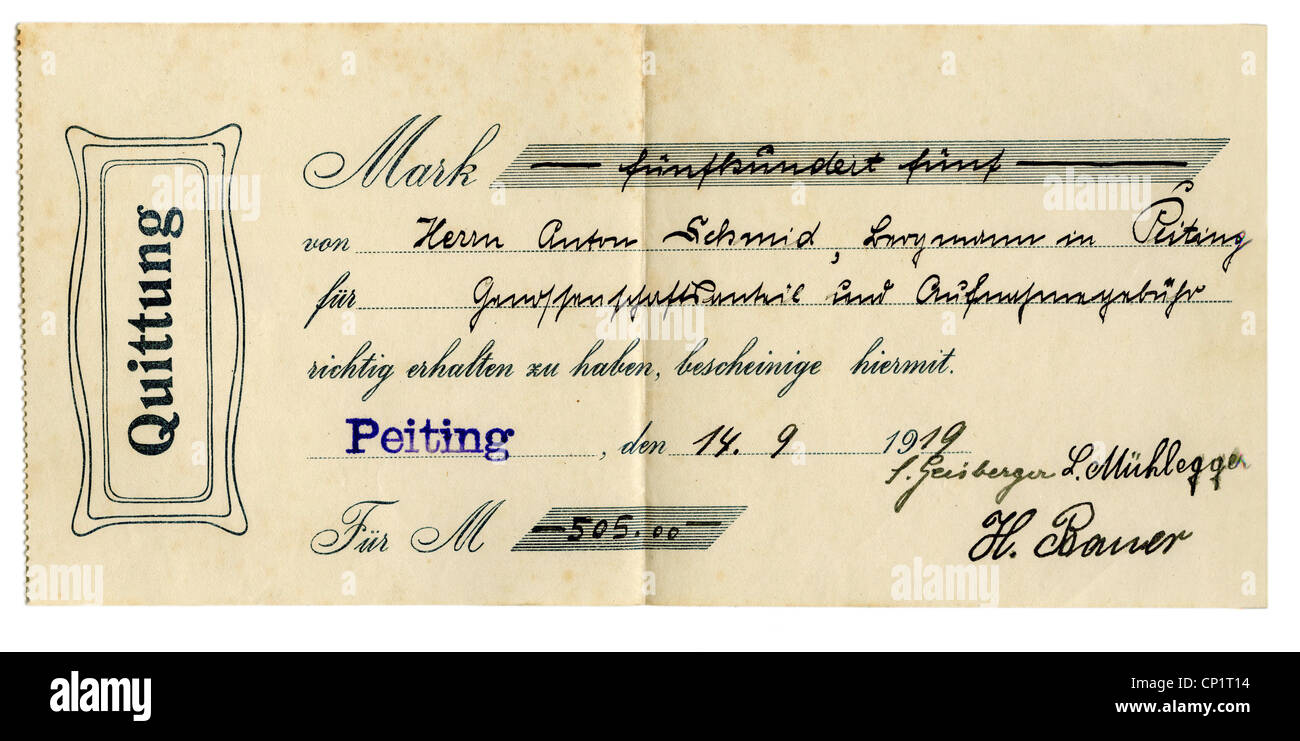 Quittung
Mark — fünfhundert fünf —
von Herrn Anton Schmid, Bergmann in Peiting
für Genossenschaftsanteil und Aufnahmegebühr
richtig erhalten zu haben, bescheinige hiermit.
Peiting, den 14. 9 1919
Geisberger L. Mühlegger
Für M —505.00—
H. Bauer
alamy
Image ID: CP1T14
www.alamy.com